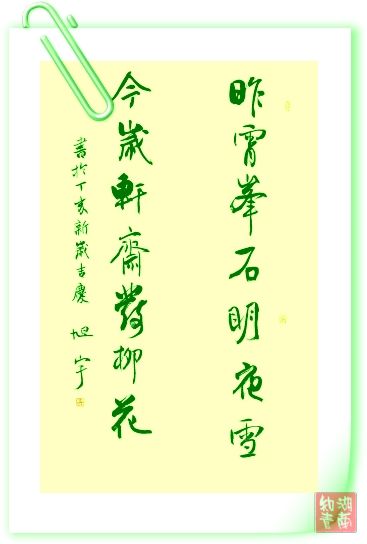 昨宵峯石明夜雪
今歲軒齋發柳花
書於丁亥新歲吉慶 旭宇
湖南知青